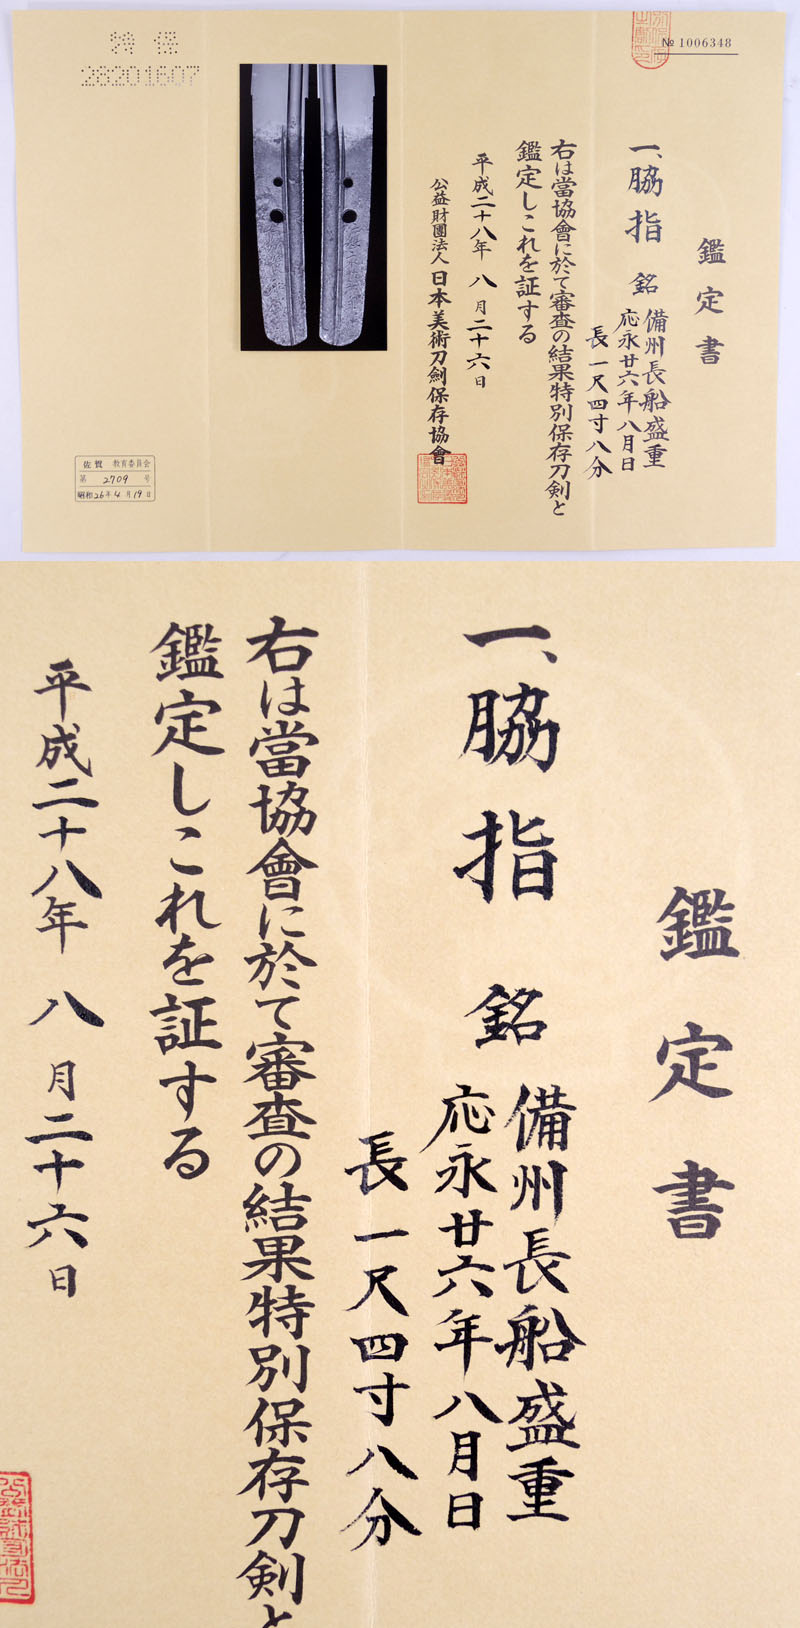 № 1006348
鑑定書
一、脇指 銘 備州長船盛重
応永廿六年八月日
長 一尺四寸八分
右は當協會に於て審査の結果特別保存刀剣と
鑑定しこれを証する
平成二十八年 八月二十六日
公益財團法人 日本美術刀劍保存協會
特保
28201607
佐賀 教育委員会
第 2709 号
昭和26年4月19日
鑑定書
一、脇指 銘 備州長船盛重
応永廿六年八月日
長 一尺四寸八分
右は當協會に於て審査の結果特別保存刀剣と
鑑定しこれを証する
平成二十八年 八月二十六日